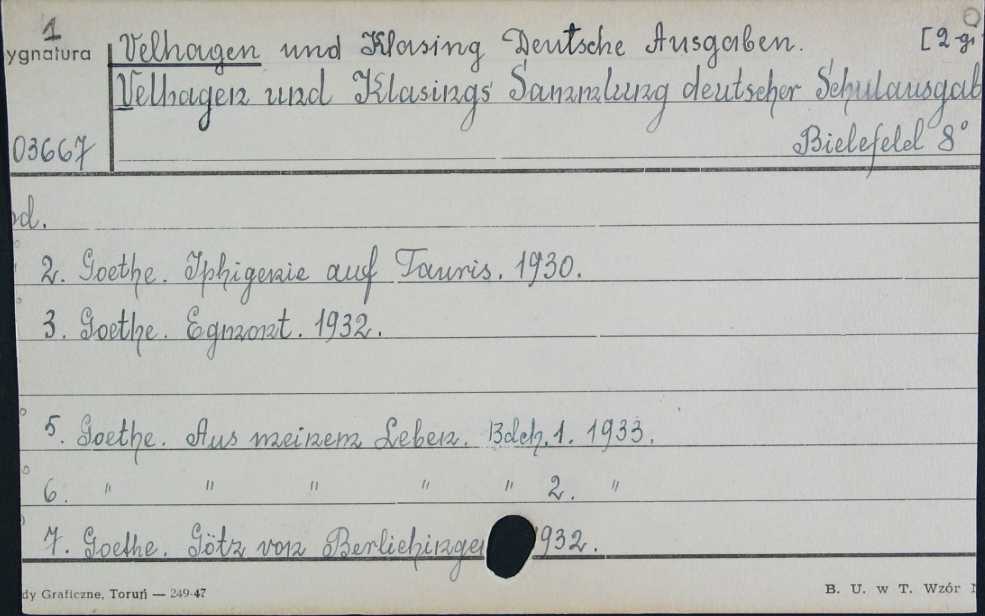 1
ygnatura Velhagen und Klasing Deutsche Ausgaben. [2-gi
Velhagen und Klasings Sammlung deutscher Schulausgab
03667 Bielefeld 8°
od.
2. Goethe. Iphigenie auf Tauris. 1930.
3. Goethe. Egmont. 1932.
5. Goethe. Aus meinem Leben. Bdch. 1. 1933.
6. " " " " " 2. "
7. Goethe. Götz von Berlichingen 1932.
dy Graficzne, Toruń — 249-47 B. U. w T. Wzór